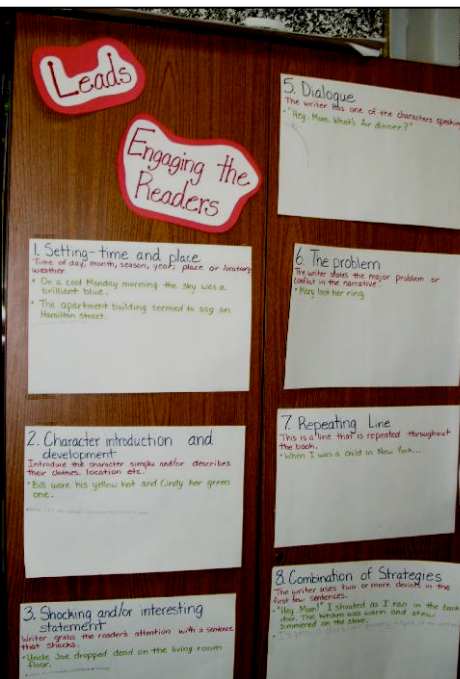 Leads
Engaging the
Readers
1. Setting-time and place
Time of day, month, season, year, place or location,
weather.
• On a cool Monday morning the sky was a
brilliant blue.
• The apartment building seemed to say on
Hamilton Street.
2. Character introduction and
development
Introduce the character simply and/or describes
their clothes, location etc.
• Bill wore his yellow hat and Cindy her green
one.
3. Shocking and/or interesting
statement
Writer grabs the reader's attention with a sentence
that shocks.
• Uncle Joe dropped dead on the living room
floor.
5. Dialogue
The writer has one of the characters speaking
• "Hey, Mom. What's for dinner?"
6. The problem
The writer states the major problem or
conflict in the narrative
• Mary lost her ring
7. Repeating Line
This is a line that is repeated throughout
the book.
• When I was a child in New York...
8. Combination of Strategies
The writer uses two or more devices in the
first few sentences.
• "Hey Mom!" I shouted as I ran in the back
door. The kitchen was warm and stew
simmered on the stove.